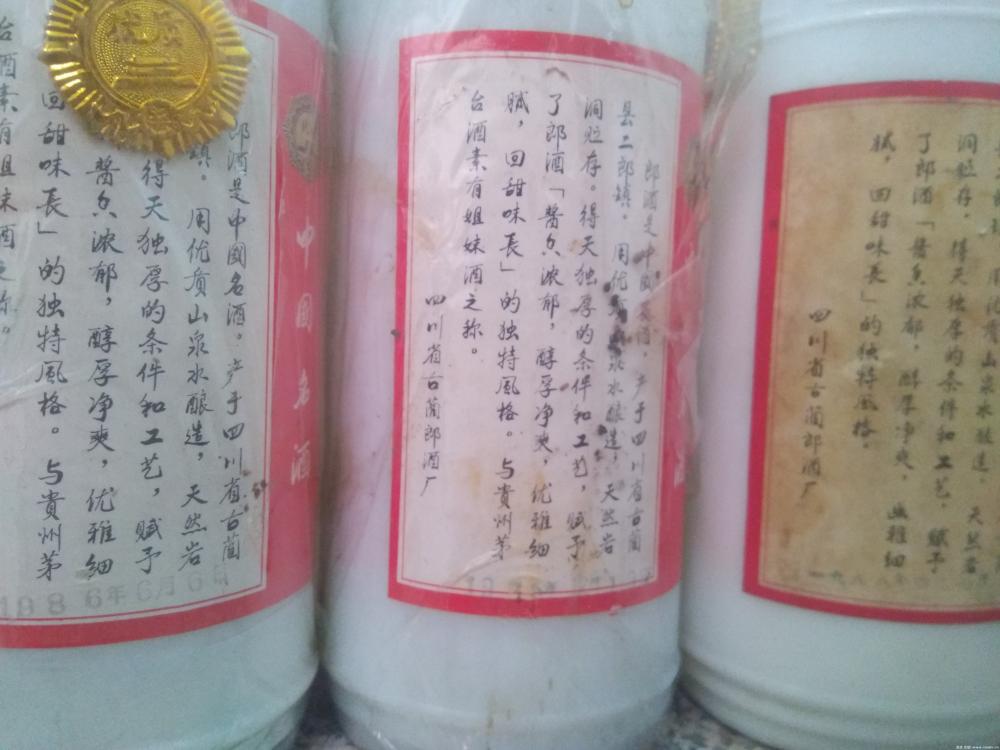 优质
郎酒是中國名酒。产于四川省古蔺
镇。用优质山泉水酿造，天然岩
得天独厚的条件和工艺，赋予
酱香浓郁，醇厚净爽，优雅细
回甜味長」的独特風格。与貴州茅
台酒素有姐妹酒之称。
1986年6月6日
中國名酒
郎酒是中國名酒，产于四川省古蔺
县二郎镇。用优质山泉水酿造，天然岩
洞贮存。得天独厚的条件和工艺，赋予
了郎酒「酱香浓郁，醇厚净爽，优雅细
腻，回甜味長」的独特風格。与貴州茅
台酒素有姐妹酒之称。
四川省古蔺郎酒厂
酒
山泉水酿造。天然岩
洞贮存，得天独厚的条件和工艺，赋予
了郎酒「酱香浓郁，醇厚净爽，幽雅细
腻，回甜味長」的独特風格。
四川省古蔺郎酒厂
一九八八年